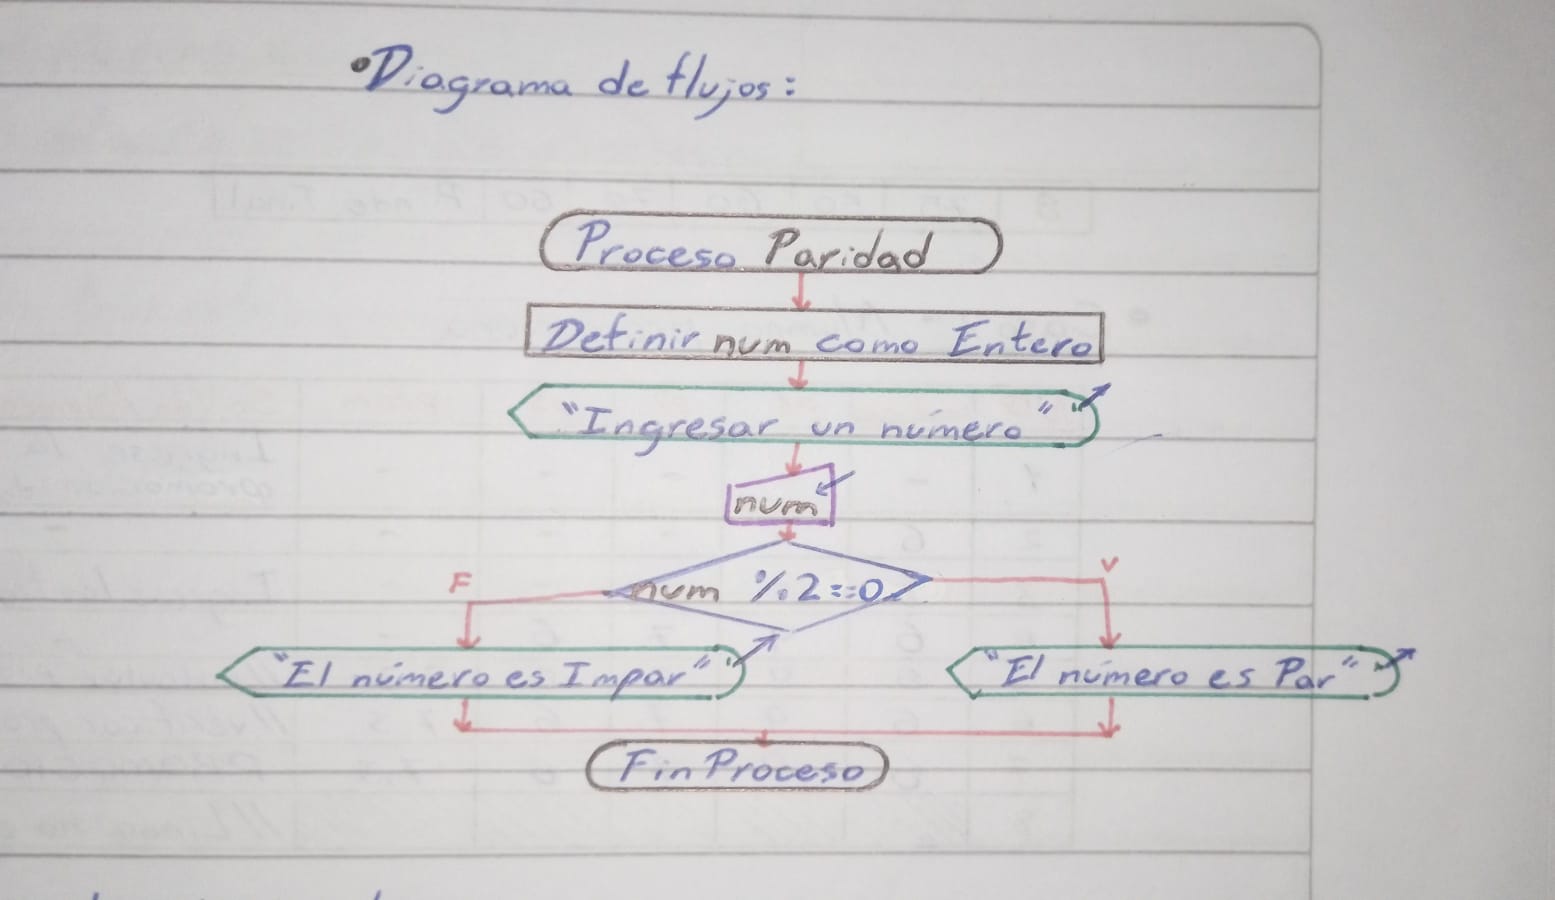 •Diagrama de flujos:
Proceso Paridad
Definir num como Entero
"Ingresar un número"
num
F
num %2==0
V
"El número es Impar"
"El número es Par"
FinProceso